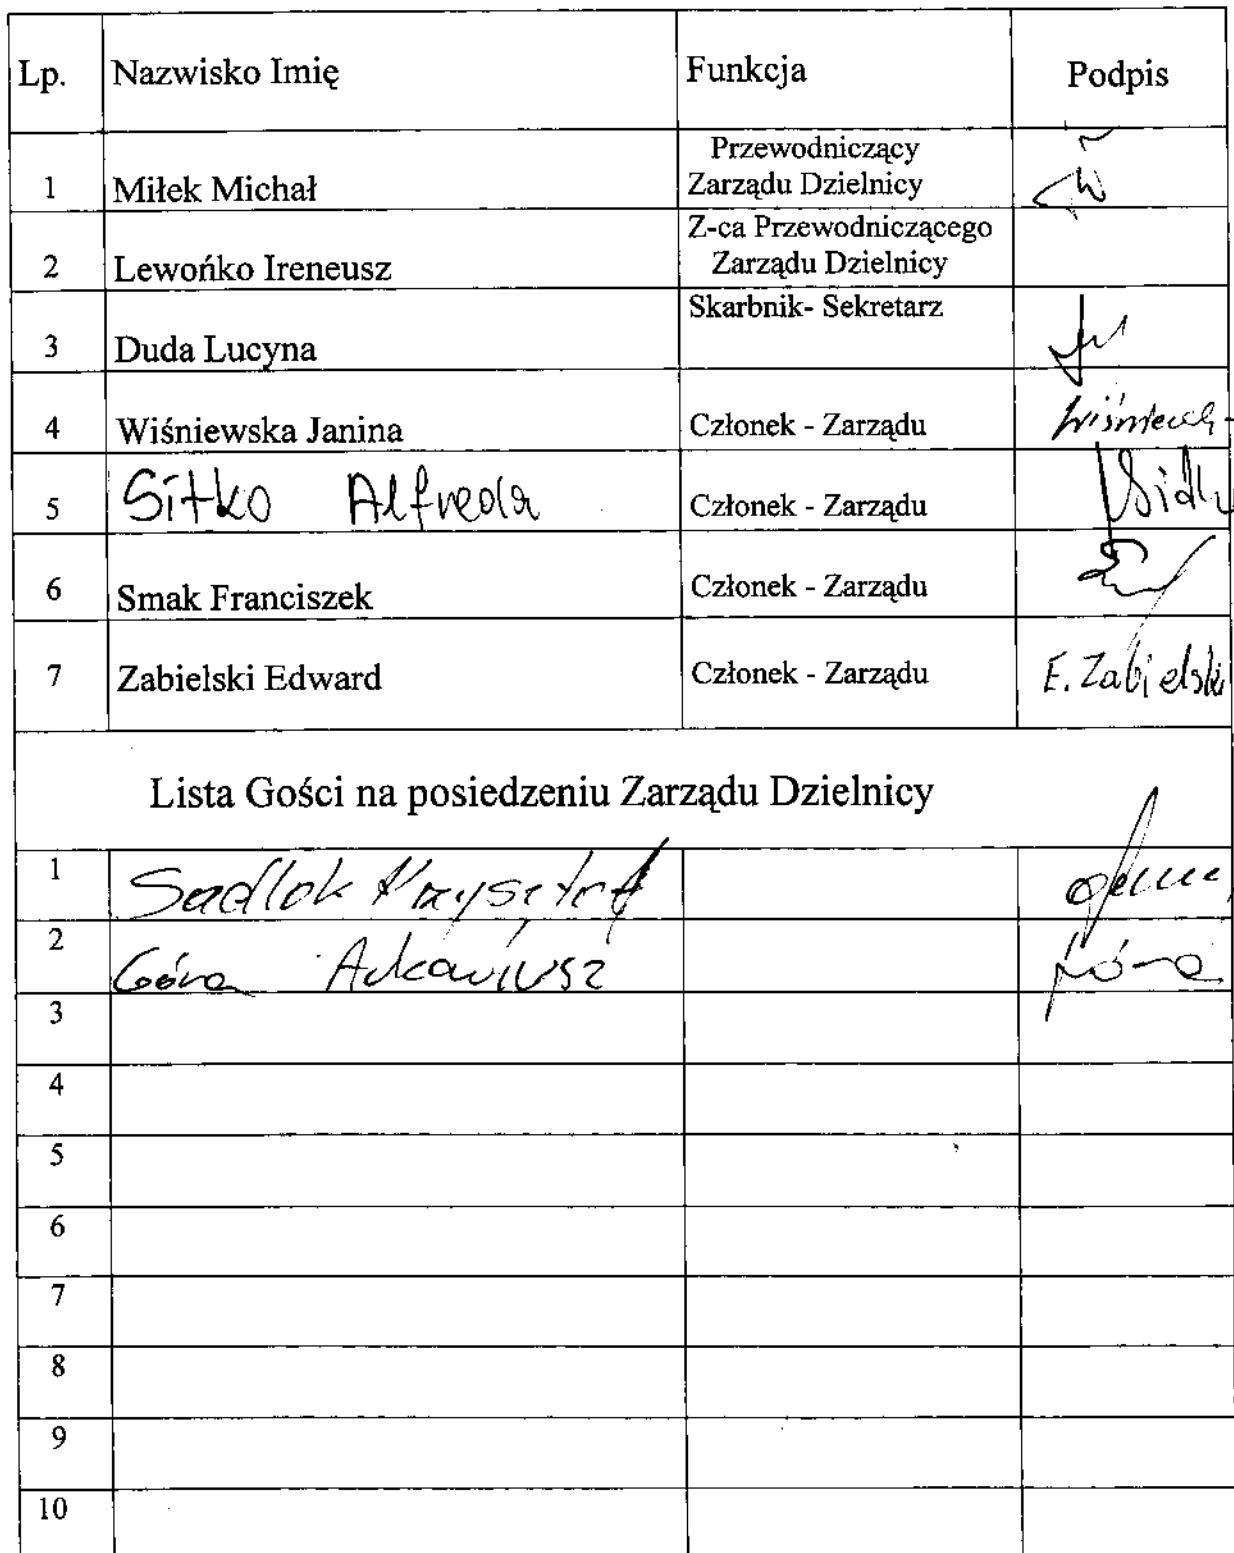 Lp. Nazwisko Imię Funkcja Podpis
1 Miłek Michał Przewodniczący Zarządu Dzielnicy
2 Lewońko Ireneusz Z-ca Przewodniczącego Zarządu Dzielnicy
3 Duda Lucyna Skarbnik- Sekretarz
4 Wiśniewska Janina Członek - Zarządu
5 Sitko Alfreda Członek - Zarządu
6 Smak Franciszek Członek - Zarządu
7 Zabielski Edward Członek - Zarządu E. Zabielski
Lista Gości na posiedzeniu Zarządu Dzielnicy
1 Sadlok Krzysztof
2 Góra Arkadiusz Góra
3
4
5
6
7
8
9
10